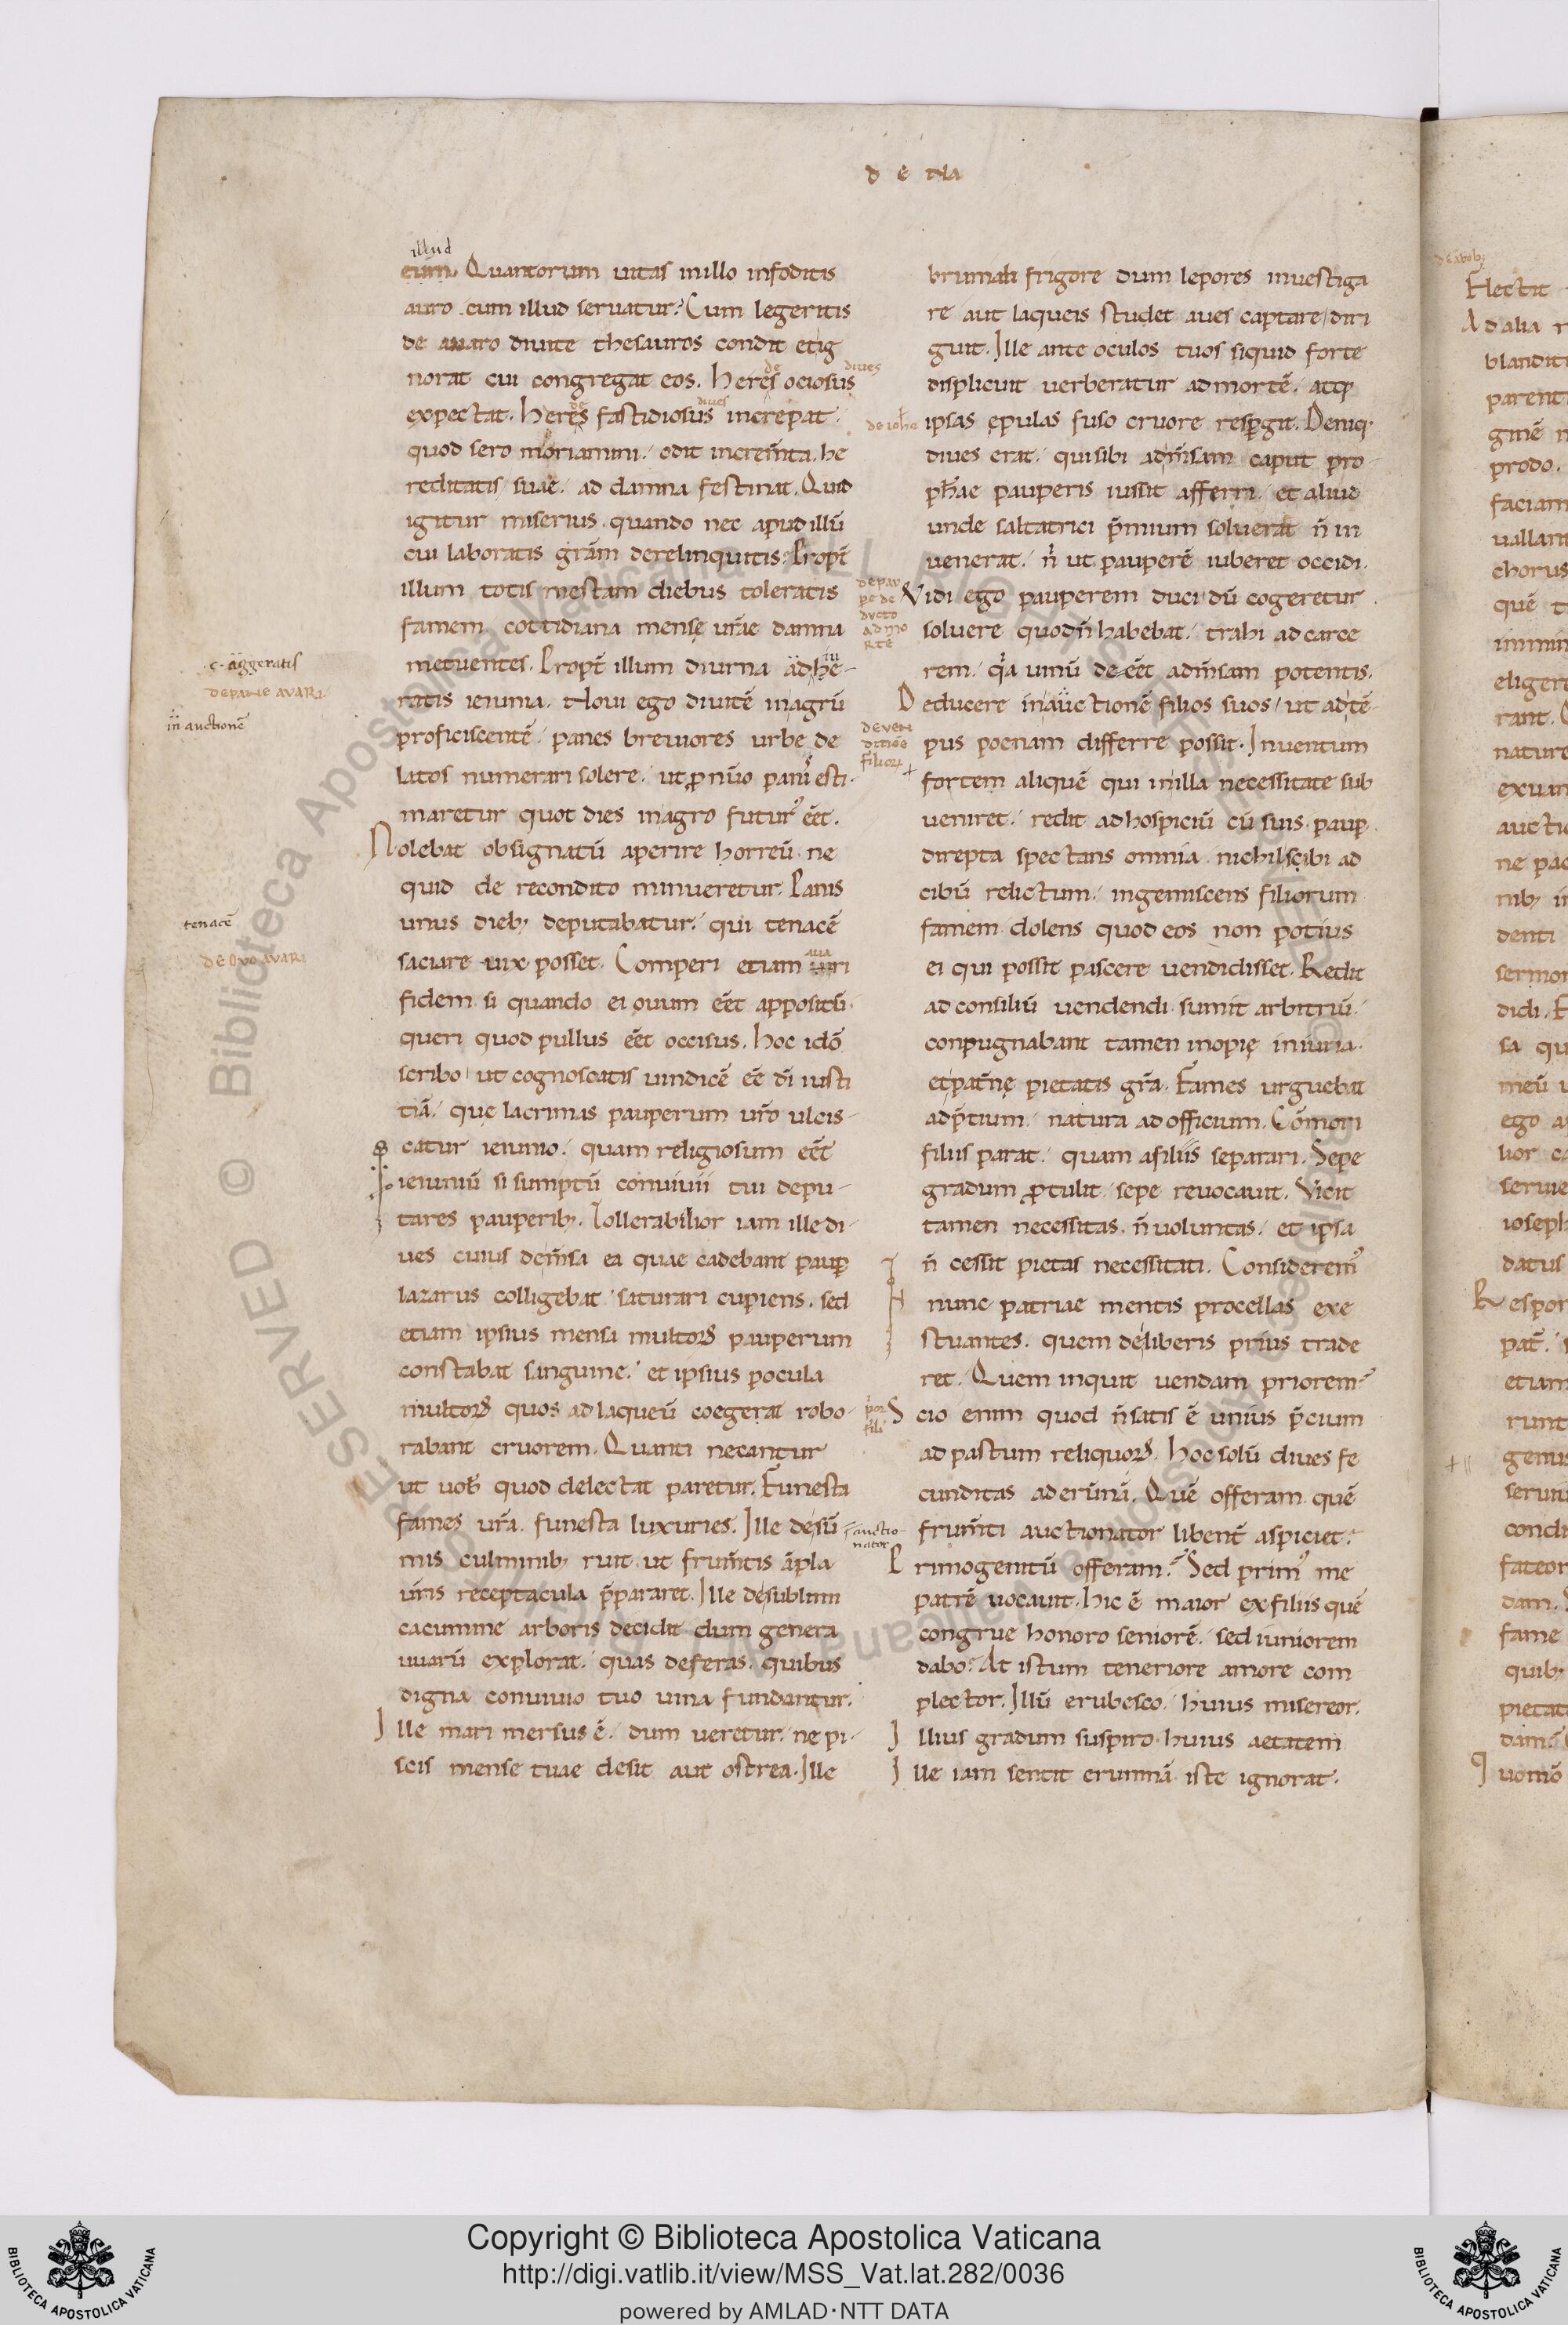 D E NA
illud
eum. Quantorum uitas in illo infoditis
auro cum illud seruatur? Cum legeritis
de auaro diuite thesauros condit et ig
norat cui congregat eos. Heres ociosus
de
diues
expectat. Heres fastidiosus increpat
de
diues
quod sero moriamini. odit increm̄ta he
reditatis suae. ad damna festinat. Quid
igitur miserius quando nec apud illū
cui laboratis grām derelinquitis? Propt̄
illum totis mestam diebus toleratis
famem cottidiana mensę ur̄ae damna
metuentes. Propt̄ illum diurna adhe-
iu
ratis ieiunia. Noui ego diuitē in agrū
proficiscentē panes breuiores urbe de
latos numerari solere. ut ꝓ nūo paniū esti-
maretur quot dies in agro futur᾽ eēt.
Nolebat obsignatū aperire horreū ne
quid de recondito minueretur. Panis
unus dieb; deputabatur. qui tenacē
saciare uix posset. Comperi etiam uiri
aua
fidem si quando ei ouum eēt appositū
queri quod pullus eēt occisus. Hoc idō
scribo ut cognoscatis uindicē eē dī iusti
tiā. quę lacrimas pauperum ur̄o ulcis-
catur ieiunio. quam religiosum eēt
ieiuniū si sumptū conuiuii tui depu-
tares pauperib;. Tollerabilior iam ille di-
ues cuius dem̄sa ea quae cadebant paup̱
lazarus colligebat saturari cupiens. sed
etiam ipsius mensa multoꝝ pauperum
constabat sanguine. et ipsius pocula
multoꝝ quos ad laqueū coegerat robo-
rabant cruorem. Quanti necantur
ut uob̄ quod delectat paretur. Funesta
fames ur̄a. funesta luxuries. Ille de sū
mis culminib; ruit ut frum̄tis āpla
ur̄is receptacula p̄pararet. Ille de sublimi
cacumine arboris decidit dum genera
uuarū explorat. quas deferas. quibus
digna conuiuio tuo uina fundantur.
Ille mari mersus ē. dum ueretur. ne pi-
scis mense tuae desit aut ostrea. Ille
c. aggeratis
DE PANE AVARI
in auctionē
tenacē
DE OVO AVARI
brumali frigore dum lepores inuestiga
re aut laqueis studet aues captare diri
guit. Ille ante oculos tuos siquid forte
displicuit uerberatur ad mortē. atq;
ipsas ępulas fuso cruore resp̱git. Deniq;
diues erat. qui sibi ad m̄sam caput pro
ph̄ae pauperis iussit afferri. et aliud
unde saltatrici p̄mium solueret n̄ in
uenerat. n̄ ut pauperē iuberet occidi.
Vidi ego pauperem duci dū cogeretur
soluere quod n̄ habebat. trahi ad carce
rem. q̄a uinū de eēt ad m̄sam potentis.
Deducere in auctionē filios suos. ut ad tē-
pus poenam differre possit. Inuentum
fortem aliquē qui in illa necessitate sub
ueniret. redit ad hospiciū cū suis paup̱
direpta spectans omnia nichil scibi ad
cibū relictum. ingemiscens filiorum
famem dolens quod eos non potius
ei qui possit pascere uendidisset. Redit
ad consiliū uendendi sumit arbitriū.
conpugnabant tamen inopię iniuria.
et pat̄nę pietatis gr̄a. Fames urguebat
ad p̄tium. natura ad officium. Cōmori
filiis parat. quam a filiis separari. Sepe
gradum ꝓtulit sepe reuocauit. Vicit
tamen necessitas. n̄ uoluntas. et ipsa
n̄ cessit pietas necessitati. Considerem᾽
nunc patriae mentis procellas exe
stuantes. quem de liberis prius trade
ret. Quem inquit uendam priorem?
Scio enim quod n̄ satis ē unius p̄cium
ad pastum reliquoꝝ. Hoc solū diues fe
cunditas ad erūnā. Quē offeram. quē
frum̄ti auctionator libent̄ aspiciet?
Primogenitū offeram? Sed prim᾽ me
patrē uocauit. hic ē maior ex filiis quē
congrue honoro seniorē. sed iuniorem
dabo? At istum teneriore amore com
plector. Illū erubesco. huius misereor.
Illius gradum suspiro. huius aetatem
Ille iam sentit erumnā iste ignorat.
de ioh̄e
de pau
pe de
ducto
ad mo
rtē
de uen
ditiōe
filioꝝ
auctio
nator
Flectit
Ad alia
blandit
parent
prodo.
faciam
uallant
chorus
quē
eligere
rant.
nature
exuan
ne pa
denti
sermo
didi.
sa qu
meū
seruie
ioseph
datus
Respon
pat̄.
etiam
runt
genus
fateor
dam.
fame
quib;
pietat
uomō
© Biblioteca Apostolica Vaticana ALL RIGHTS RESERVED
Copyright © Biblioteca Apostolica Vaticana
http://digi.vatlib.it/view/MSS_Vat.lat.282/0036
powered by AMLAD·NTT DATA
BIBLIOTECA APOSTOLICA VATICANA
BIBLIOTECA APOSTOLICA VATICANA